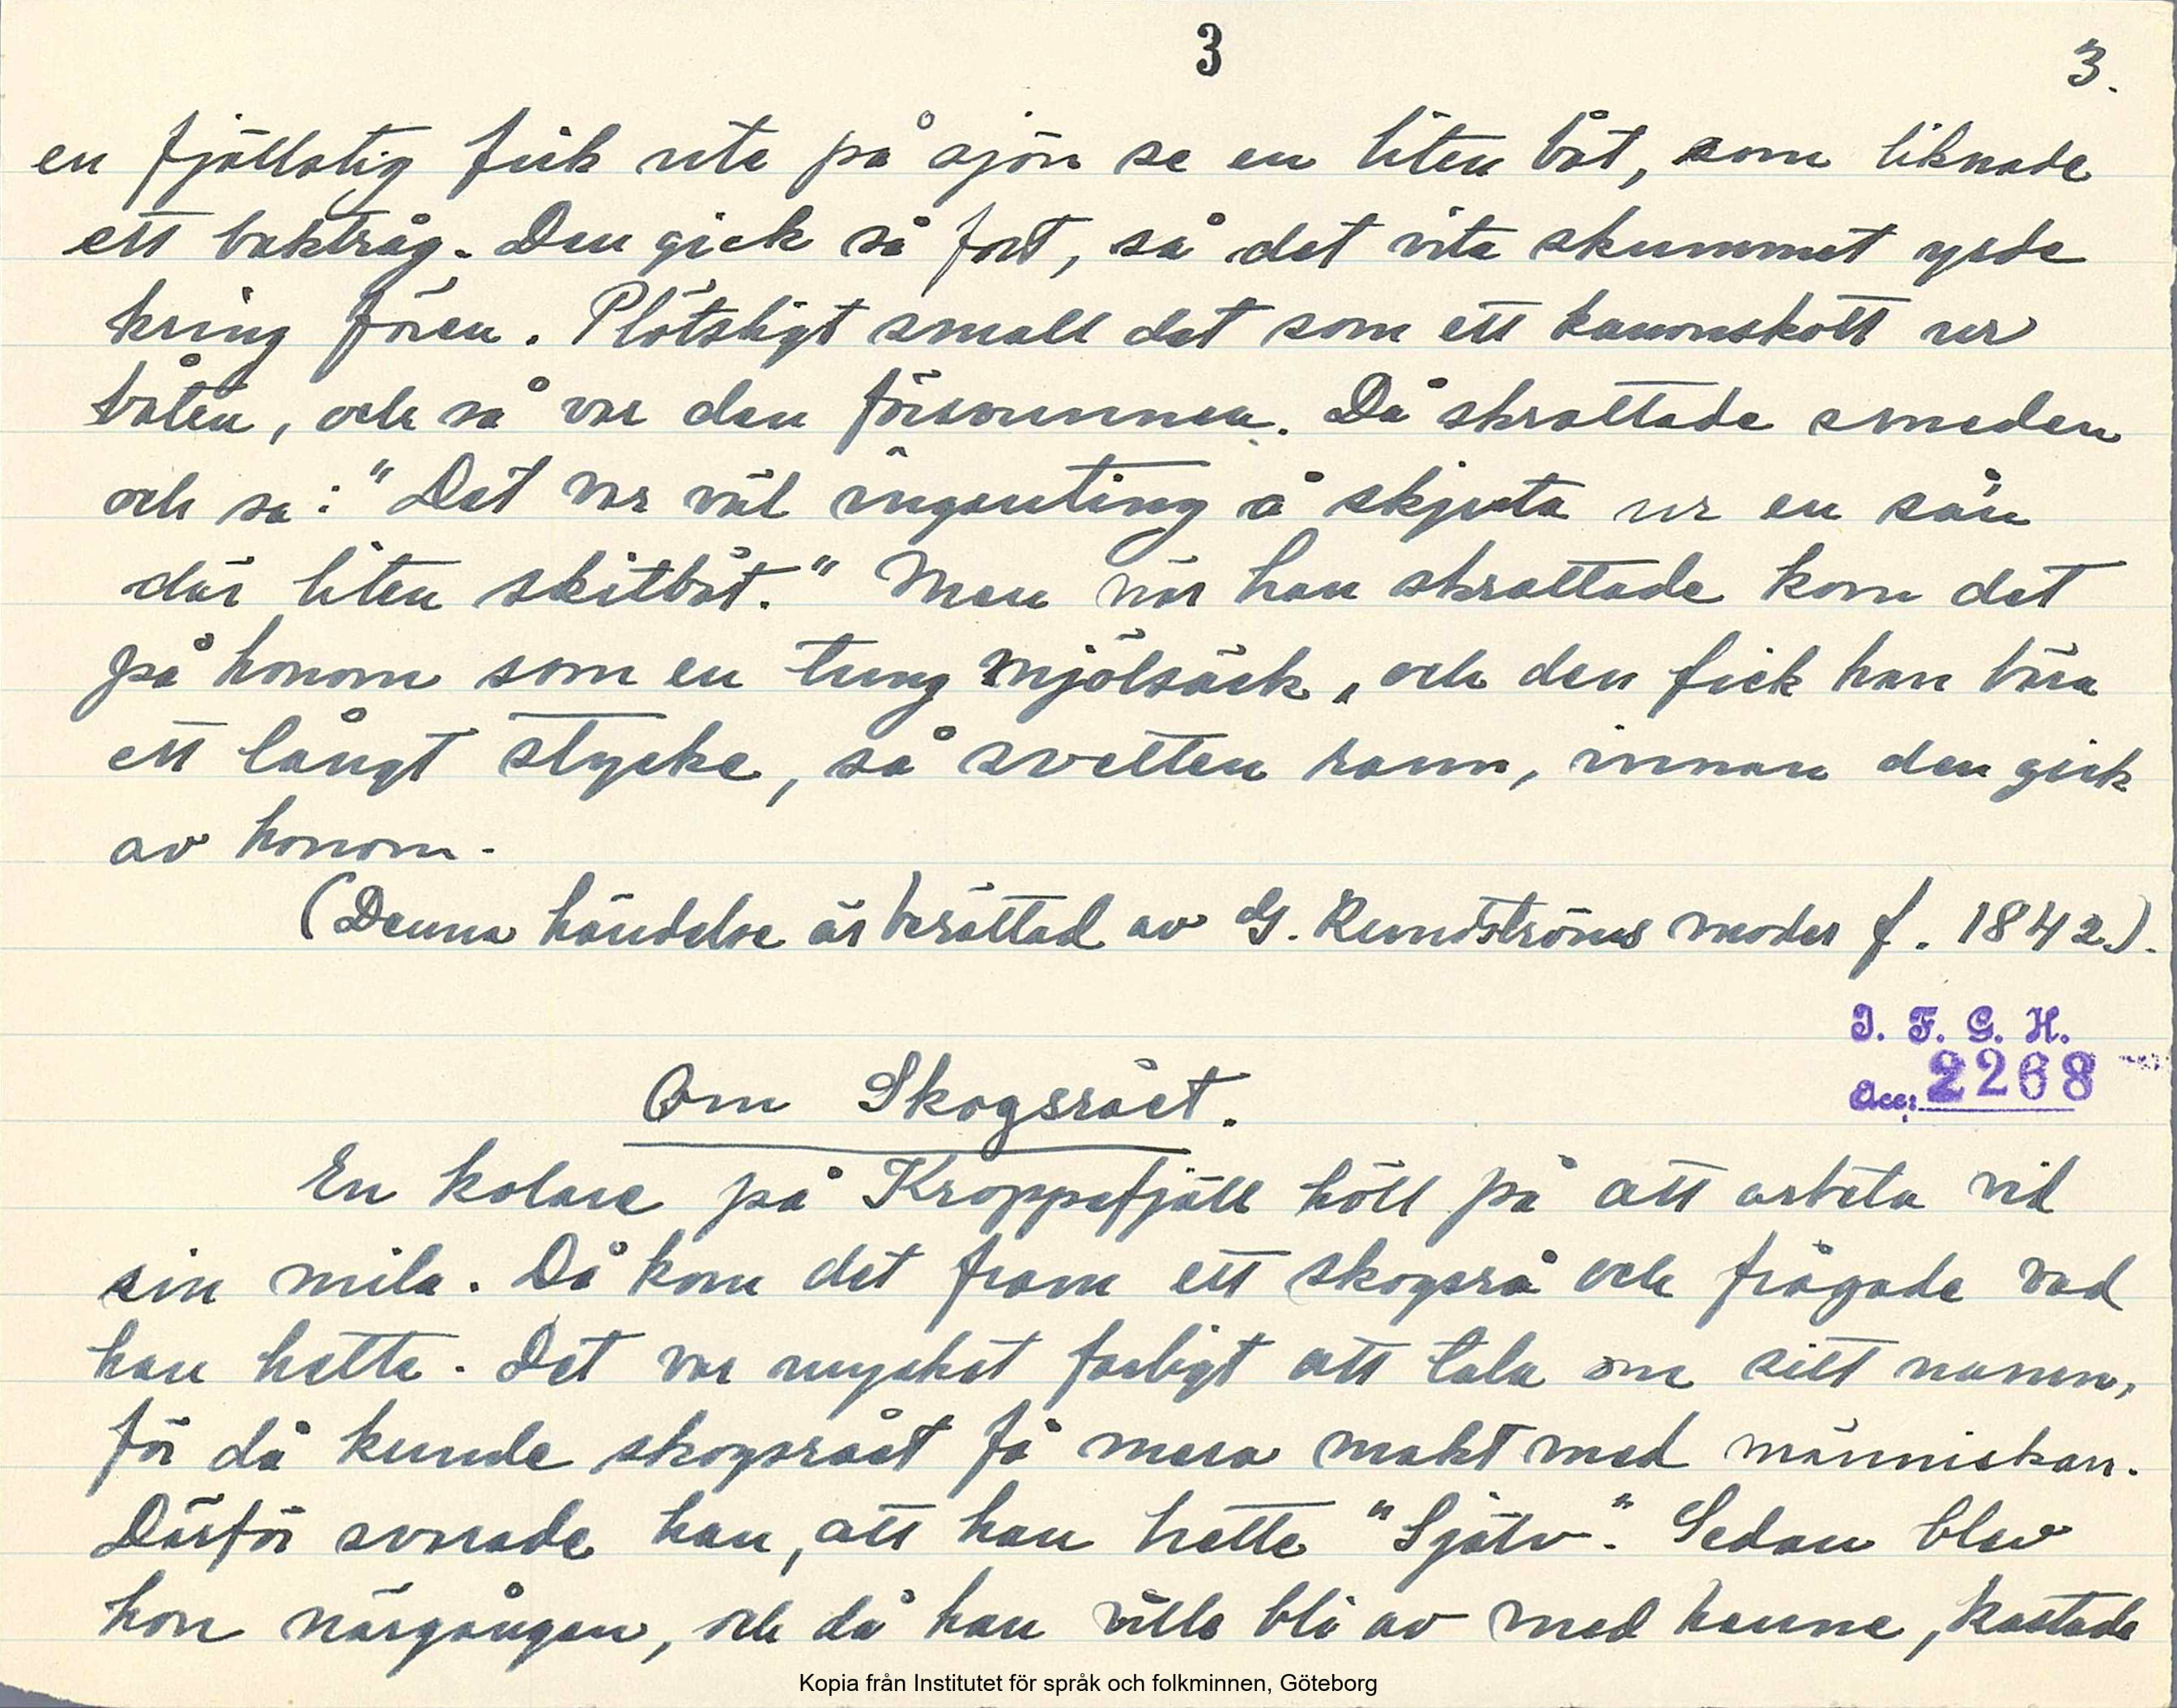 3
3.
en fjällstig fick ute på sjön se en liten båt, som liknade
ett baktråg. Den gick så fort, så det vita skummet yrde
kring fören. Plötsligt small det som ett kanonskott ur
båten, och så var den försvunnen. Då skrattade smeden
och sa: "Det var väl ingenting å skjuta ur en sån
där liten skitbåt." Men när han skrattade kom det
på honom som en tung mjölsäck, och den fick han bära
ett långt stycke, så svetten rann, innan den gick
av honom.
(Denna händelse är berättad av G. Rundströms moder f. 1842).
I. F. G. H.
Acc: 2268
Om Skogsrået.
En kolare på Kroppefjäll höll på att arbeta vid
sin mila. Då kom det fram ett skogsrå och frågade vad
han hette. Det var mycket farligt att tala om sitt namn,
för då kunde skogsrået få mera makt med människan.
Därför svarade han, att han hette "Själv". Sedan blev
hon närgången, och då han ville bli av med henne, kastade
Kopia från Institutet för språk och folkminnen, Göteborg